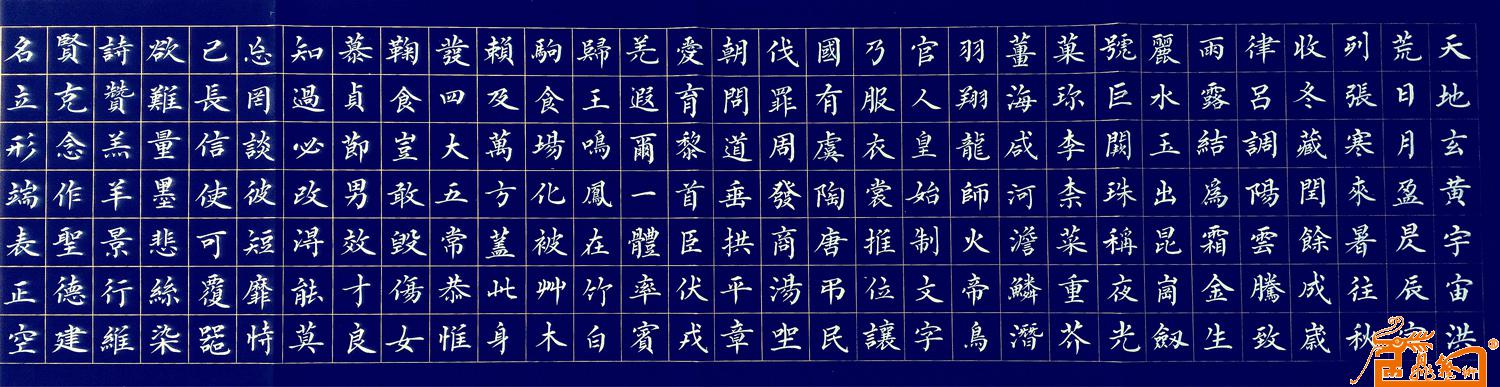 天地玄黃宇宙洪
荒日月盈昃辰宿
列張寒來暑往秋
收冬藏閏餘成歲
律呂調陽雲騰致
雨露結爲霜金生
麗水玉出昆崗劔
號巨闕珠稱夜光
菓珍李柰菜重芥
薑海咸河澹鱗潛
羽翔龍師火帝鳥
官人皇始制文字
乃服衣裳推位讓
國有虞陶唐弔民
伐罪周發商湯坐
朝問道垂拱平章
愛育黎首臣伏戎
羌遐爾一體率賓
歸王鳴鳳在竹白
駒食場化被艸木
賴及萬方蓋此身
發四大五常恭惟
鞠食豈敢毀傷女
慕貞節男效才良
知過必改得能莫
忘罔談彼短靡恃
己長信使可覆器
欲難量墨悲絲染
詩贊羔羊景行維
賢克念作聖德建
名立形端表正空